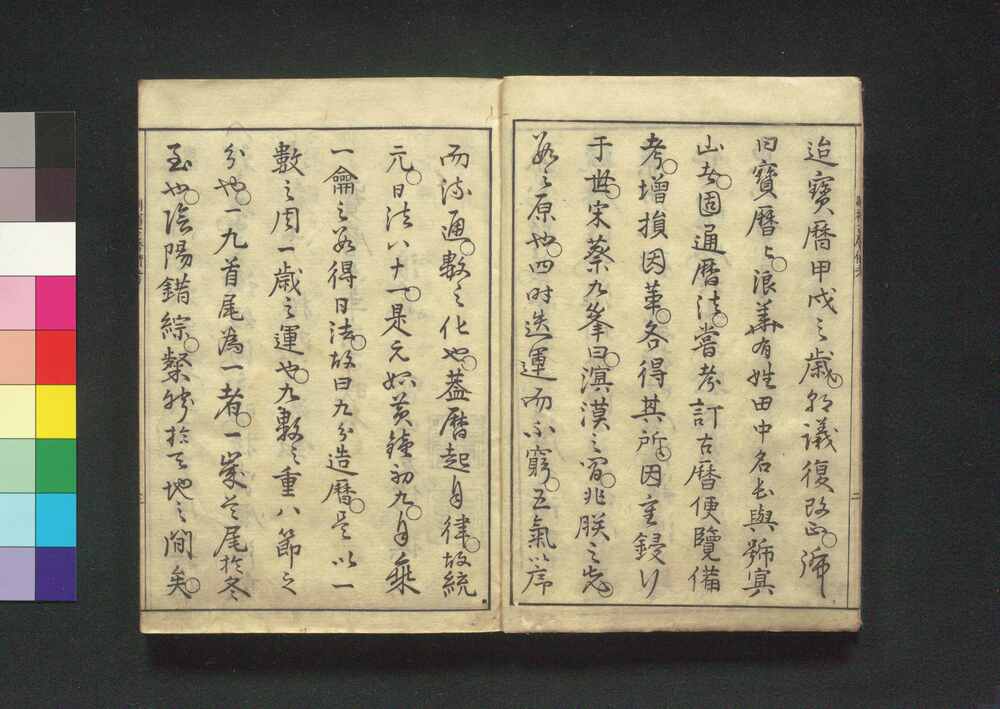 迨寶暦甲戌之歳。朝議復改正。號
曰寶暦。浪華有姓田中名玄與號冥
山者。固通暦法。嘗考訂古暦便覽備
考。增損因革。各得其所。因重鋟行
于世。宋蔡九峯曰。溟漠之間。兆朕之先。
數之原也。四時迭運而不窮。五氣以序
而流通。數之化也。蓋暦起自律。故統
元。日法八十一。是元始黄鐘初九。自乘
一龠之數得日法。故曰九分造暦。是以一
數之周一歳之運也。九數之重八節之
分也。一九首尾為一者。一歳首尾於冬
至也。陰陽錯綜。粲然於天地之間矣。